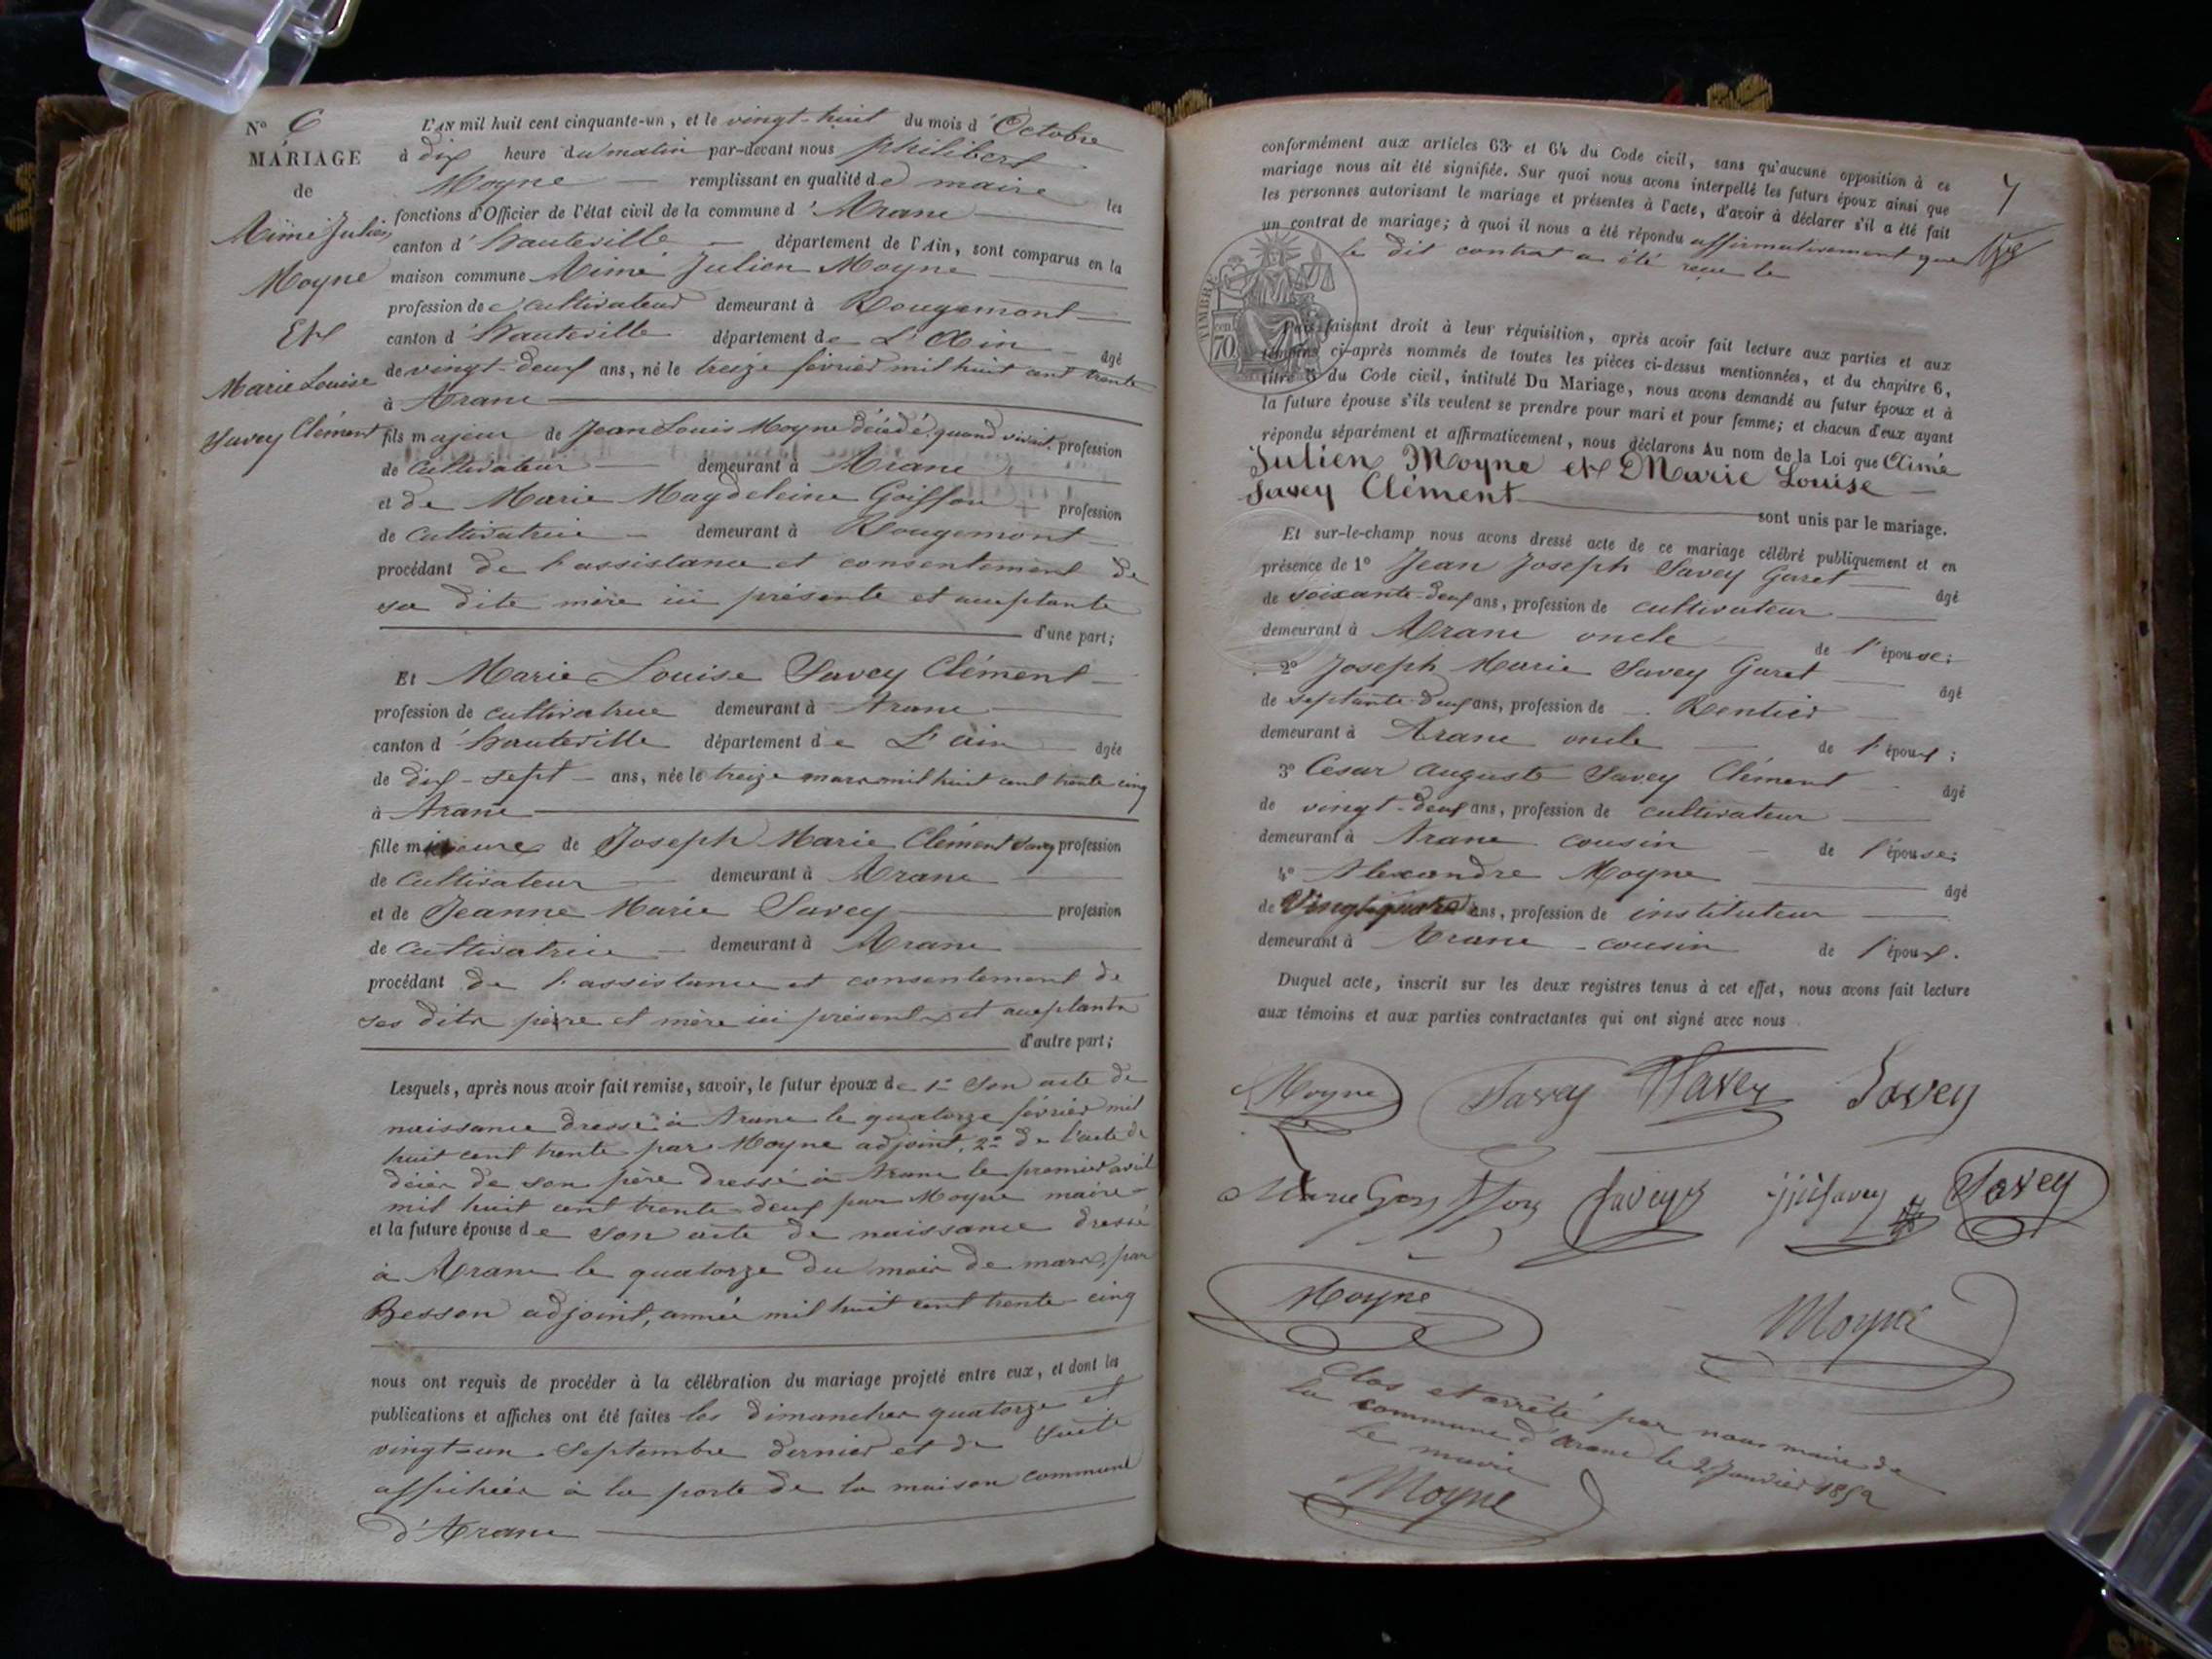 N° 6
MARIAGE
de
Aimé Julien
Moyne
Et
Marie Louise
Savey Clément
L'AN mil huit cent cinquante-un, et le vingt-huit du mois d'Octobre
à dix heure du matin par-devant nous Philibert
Moyne remplissant en qualité de maire les
fonctions d'Officier de l'état civil de la commune d'Aranc
canton d'hauteville département de l'Ain, sont comparus en la
maison commune Aimé Julien Moyne
profession de cultivateur demeurant à Rougemont
canton d'hauteville département de L'Ain âgé
de vingt-deux ans, né le treize février mil huit cent trente
à Aranc
fils majeur de Jean Louis Moyne décédé, quand vivait profession
de cultivateur demeurant à Aranc
et de Marie Magdeleine Goiffon profession
de cultivatrice demeurant à Rougemont
procédant de l'assistance et consentement de
sa dite mère ici présente et acceptante
d'une part;
Et Marie Louise Savey Clément
profession de cultivatrice demeurant à Aranc
canton d'hauteville département de L'ain âgée
de dix-sept ans, née le treize mars mil huit cent trente cinq
à Aranc
fille mineure de Joseph Marie Clément Savey profession
de cultivateur demeurant à Aranc
et de Jeanne Marie Savey profession
de cultivatrice demeurant à Aranc
procédant de l'assistance et consentement de
ses dits père et mère ici présents et acceptants
d'autre part;
Lesquels, après nous avoir fait remise, savoir, le futur époux de 1° Son acte de
naissance dressé à Aranc le quatorze février mil
huit cent trente par Moyne adjoint, 2° de l'acte de
décès de son père dressé à Aranc le premier avril
mil huit cent trente-deux par Moyne maire
et la future épouse de son acte de naissance dressé
à Aranc le quatorze du mois de mars, par
Besson adjoint, année mil huit cent trente cinq
nous ont requis de procéder à la célébration du mariage projeté entre eux, et dont les
publications et affiches ont été faites les dimanches quatorze et
vingt-un Septembre dernier et de suite
affichées à la porte de la maison commune
d'Aranc
7
conformément aux articles 63 et 64 du Code civil, sans qu'aucune opposition à ce
mariage nous ait été signifiée. Sur quoi nous avons interpellé les futurs époux ainsi que
les personnes autorisant le mariage et présentes à l'acte, d'avoir à déclarer s'il a été fait
un contrat de mariage; à quoi il nous a été répondu affirmativement que
le dit contrat a été reçu le
TIMBRE
cen
70
Puis faisant droit à leur réquisition, après avoir fait lecture aux parties et aux
témoins ci-après nommés de toutes les pièces ci-dessus mentionnées, et du chapitre 6,
titre 5 du Code civil, intitulé Du Mariage, nous avons demandé au futur époux et à
la future épouse s'ils veulent se prendre pour mari et pour femme; et chacun d'eux ayant
répondu séparément et affirmativement, nous déclarons Au nom de la Loi que Aimé
Julien Moyne et Marie Louise
Savey Clément
sont unis par le mariage.
Et sur-le-champ nous avons dressé acte de ce mariage célébré publiquement et en
présence de 1° Jean Joseph Savey Garet âgé
de soixante-deux ans, profession de cultivateur
demeurant à Aranc oncle de l'épouse;
2° Joseph Marie Savey Garet âgé
de septante-deux ans, profession de Rentier
demeurant à Aranc oncle de l'époux;
3° Cesar auguste Savey Clément âgé
de vingt-deux ans, profession de cultivateur
demeurant à Aranc cousin de l'épouse;
4° Alexandre Moyne âgé
de Vingt-quatre ans, profession de instituteur
demeurant à Aranc cousin de l'époux.
Duquel acte, inscrit sur les deux registres tenus à cet effet, nous avons fait lecture
aux témoins et aux parties contractantes qui ont signé avec nous
Moyne Savey Savey Savey
Marie Savey jjh Savey Savey
Moyne Moyne
Clos et arrêté par nous maire de
la commune d'Aranc le 2 Janvier 1852
Le maire
Moyne